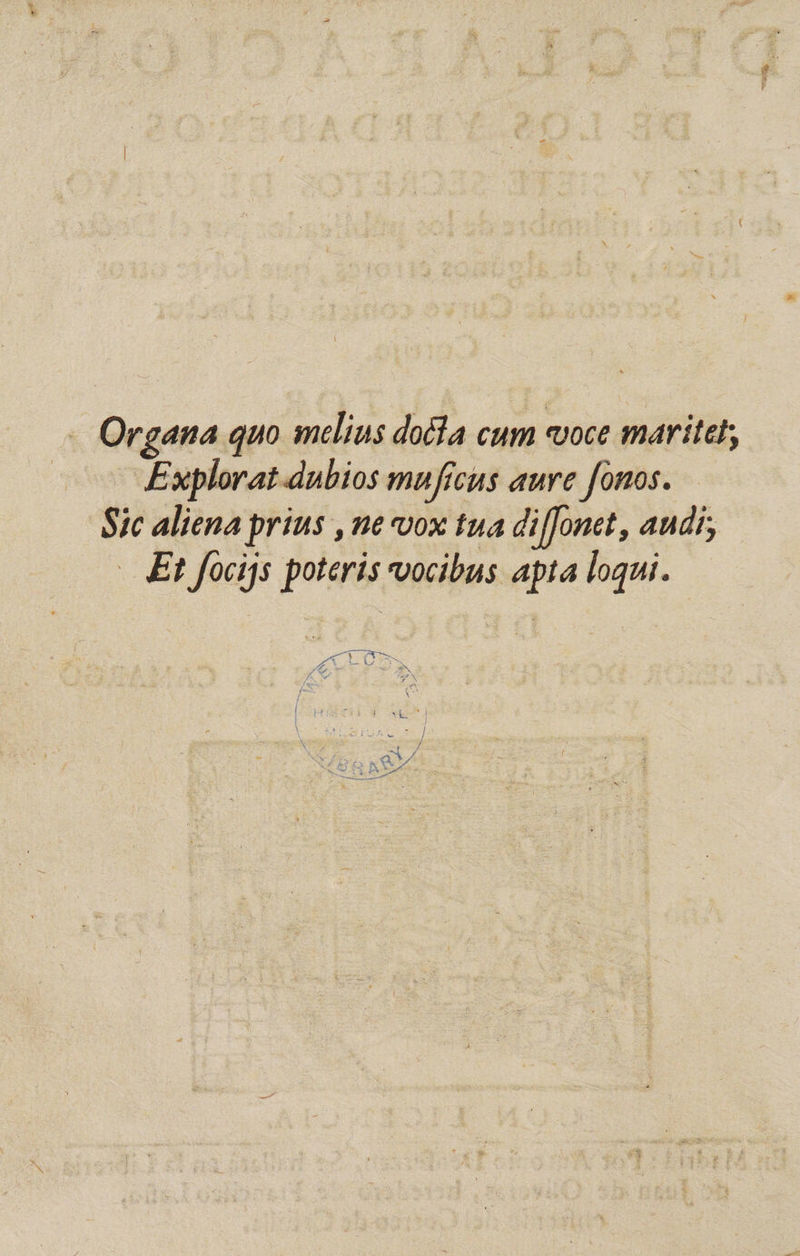 Organa quo melius docta cum voce maritet;
Explorat dubios musicus aure sonos.
Sic aliena prius, ne vox tua dissonet, audi;
Et socijs poteris vocibus apta loqui.